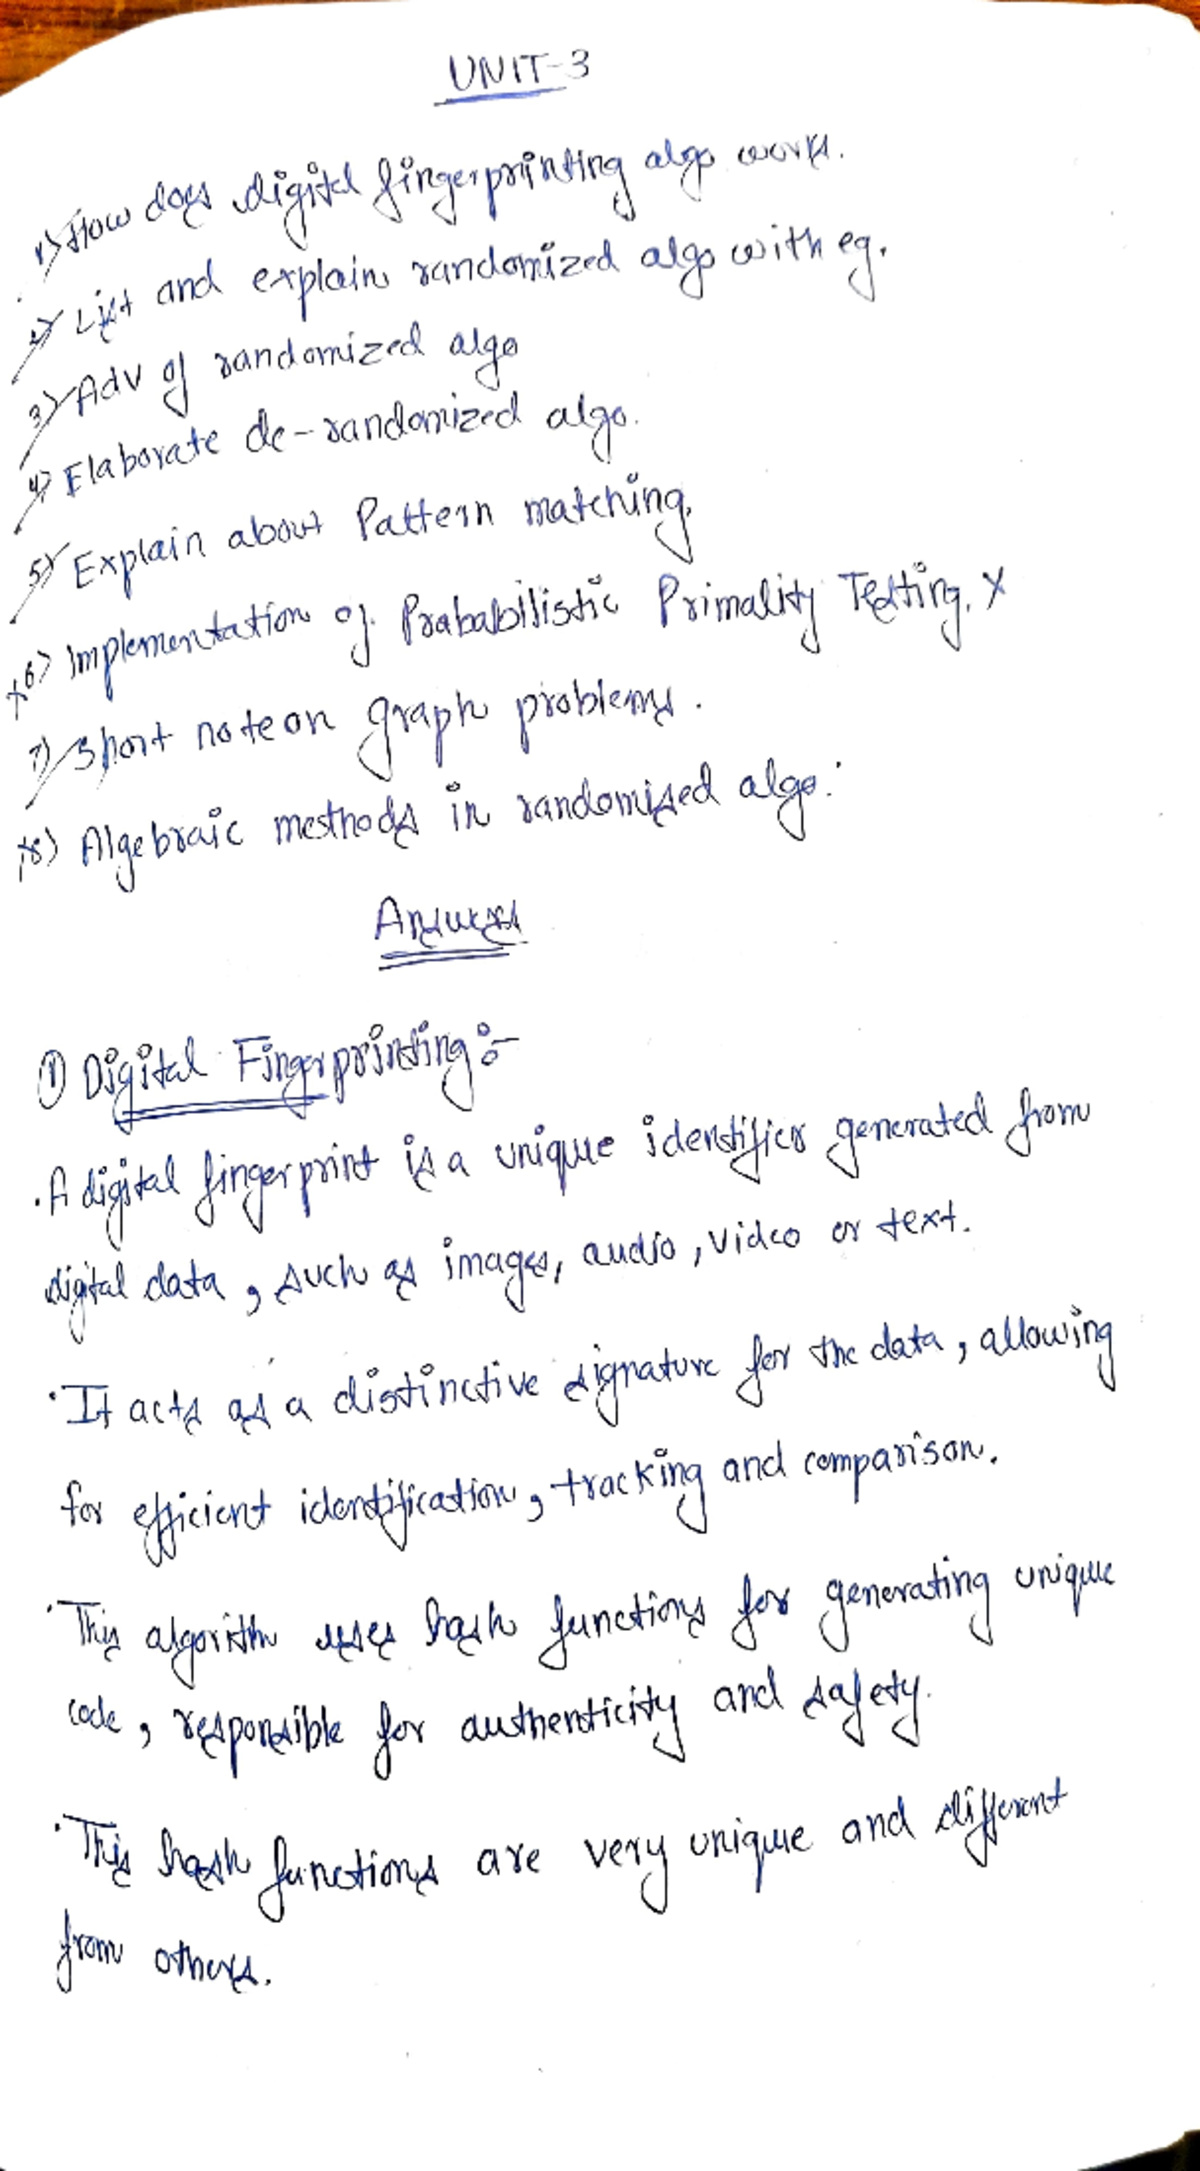 UNIT-3
1) How does digital fingerprinting algo works.
2) List and explain randomized algo with eg.
3) Adv of randomized algo
4) Elaborate de-randomized algo.
5) Explain about Pattern matching.
6) Implementation of Prababilistic Primality Testing. X
7) Short note on graph problems.
8) Algebraic methods in randomised algo:
Answers
① Digital Fingerprinting:-
. A digital fingerprint is a unique identifier generated from
digital data, such as images, audio, video or text.
. It acts as a distinctive signature for the data, allowing
for efficient identification, tracking and comparison.
. This algorithm uses hash functions for generating unique
code, responsible for authenticity and safety.
. This hash functions are very unique and different
from others.